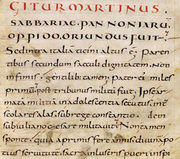 GITURMARTINUS
SABBARIAE·PANNONIARU
OPPIDOORIUNDUSFUIT·
Sedintraitaliaticinialtus ē; Paren
tibus secundumsaeculidignitatem non
infimis, gentilibtamen. patereius miles
primum posttribunusmilitufuit; Ipse ar
matamilitiainadulescentiasecutus int
scolaresalas subregeconstantio. dein
subiulianocaesaremilitavit; Nontamen
sponte·quia aprimisfere annis